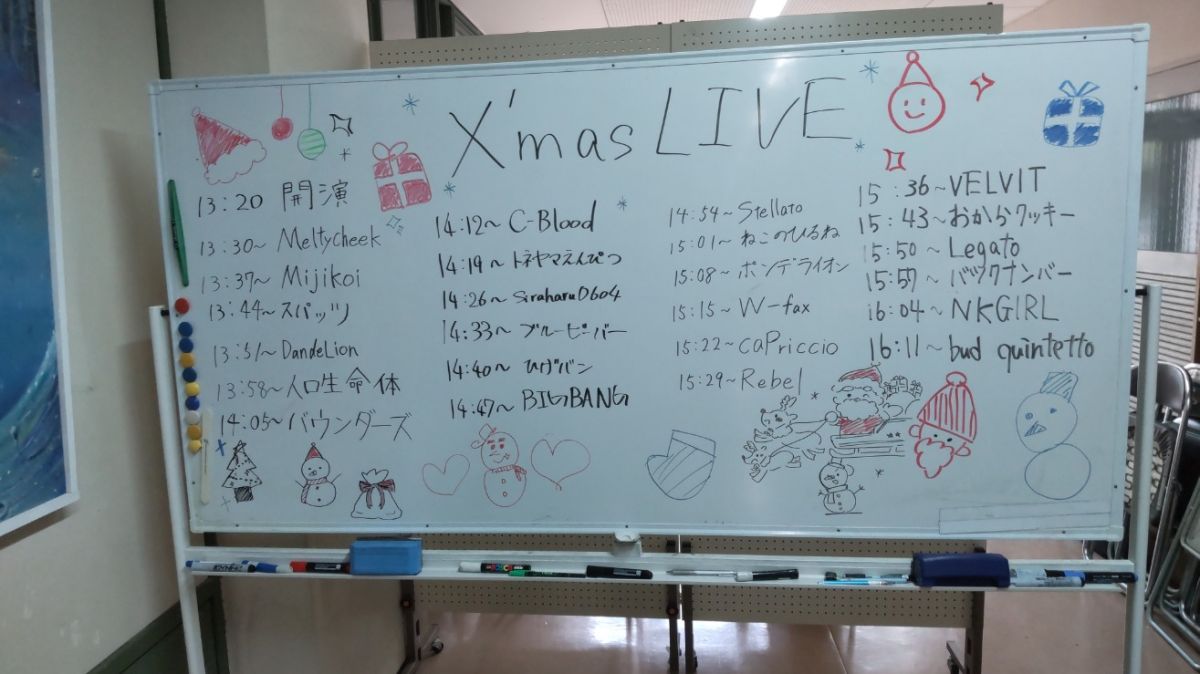 X'mas LIVE
13:20 開演
13:30~ Meltycheek
13:37~ Mijikoi
13:44~ スパッツ
13:51~ DandeLion
13:58~ 人口生命体
14:05~ バウンダーズ
14:12~ C-Blood
14:19~ トネヤマえんぴつ
14:26~ Siraharu0604
14:33~ ブルービーバー
14:40~ ひげバン
14:47~ BIGBANG
14:54~ Stellato
15:01~ ねこのひるね
15:08~ ポンデライオン
15:15~ W-fax
15:22~ caPriccio
15:29~ Rebel
15:36~ VELVIT
15:43~ おからクッキー
15:50~ Legato
15:57~ バックナンバー
16:04~ NKGIRL
16:11~ bud quintetto